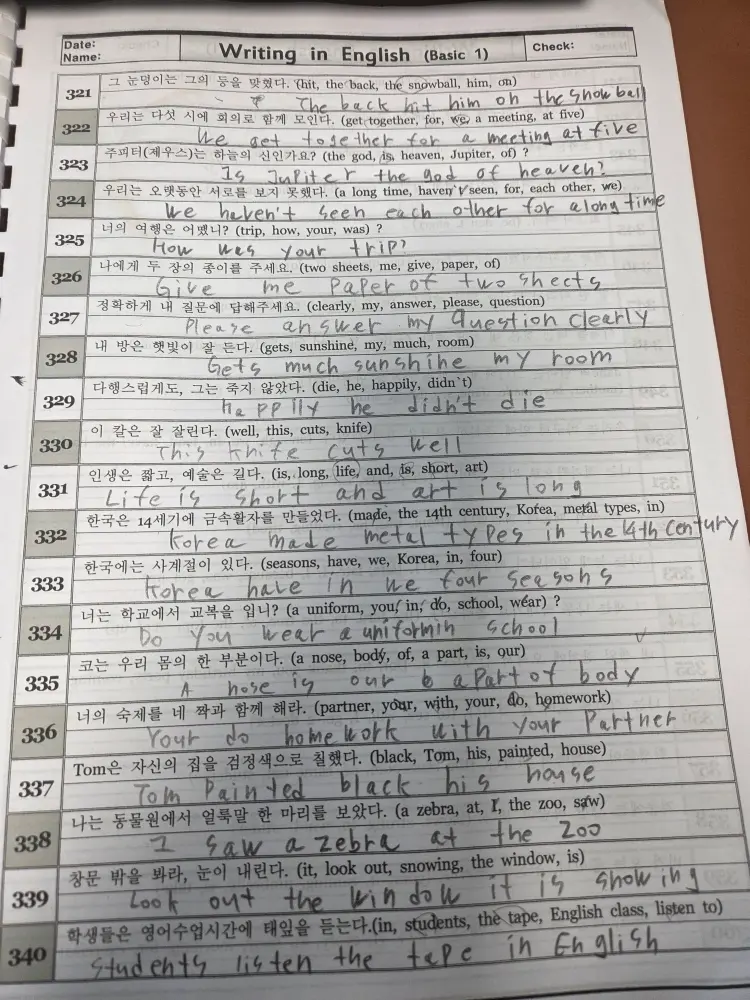 Date:
Name:
Writing in English (Basic 1)
Check:
321 그 눈덩이는 그의 등을 맞혔다. (hit, the back, the snowball, him, on)
The back hit him on the snowball
322 우리는 다섯 시에 회의로 함께 모인다. (get together, for, we, a meeting, at five)
We get together for a meeting at five
323 주피터(제우스)는 하늘의 신인가요? (the god, is, heaven, Jupiter, of) ?
Is Jupiter the god of heaven?
324 우리는 오랫동안 서로를 보지 못했다. (a long time, haven`t seen, for, each other, we)
We haven't seen each other for a long time
325 너의 여행은 어땠니? (trip, how, your, was) ?
How was your trip?
326 나에게 두 장의 종이를 주세요. (two sheets, me, give, paper, of)
Give me Paper of two sheets
327 정확하게 내 질문에 답해주세요. (clearly, my, answer, please, question)
Please answer my Question clearly
328 내 방은 햇빛이 잘 든다. (gets, sunshine, my, much, room)
Gets much sunshine my room
329 다행스럽게도, 그는 죽지 않았다. (die, he, happily, didn`t)
happily he didn't die
330 이 칼은 잘 잘린다. (well, this, cuts, knife)
This knife cuts well
331 인생은 짧고, 예술은 길다. (is, long, life, and, is, short, art)
Life is short and art is long
332 한국은 14세기에 금속활자를 만들었다. (made, the 14th century, Korea, metal types, in)
Korea made metal types in the 14th century
333 한국에는 사계절이 있다. (seasons, have, we, Korea, in, four)
Korea have in we four seasons
334 너는 학교에서 교복을 입니? (a uniform, you, in, do, school, wear) ?
Do You wear a uniformin school
335 코는 우리 몸의 한 부분이다. (a nose, body, of, a part, is, our)
A nose is our a Part of body
336 너의 숙제를 네 짝과 함께 해라. (partner, your, with, your, do, homework)
Your do homework with your Partner
337 Tom은 자신의 집을 검정색으로 칠했다. (black, Tom, his, painted, house)
Tom Painted black his house
338 나는 동물원에서 얼룩말 한 마리를 보았다. (a zebra, at, I, the zoo, saw)
I saw a zebra at the Zoo
339 창문 밖을 봐라, 눈이 내린다. (it, look out, snowing, the window, is)
Look out the window it is snowing
340 학생들은 영어수업시간에 테잎을 듣는다.(in, students, the tape, English class, listen to)
Students listen the tape in English